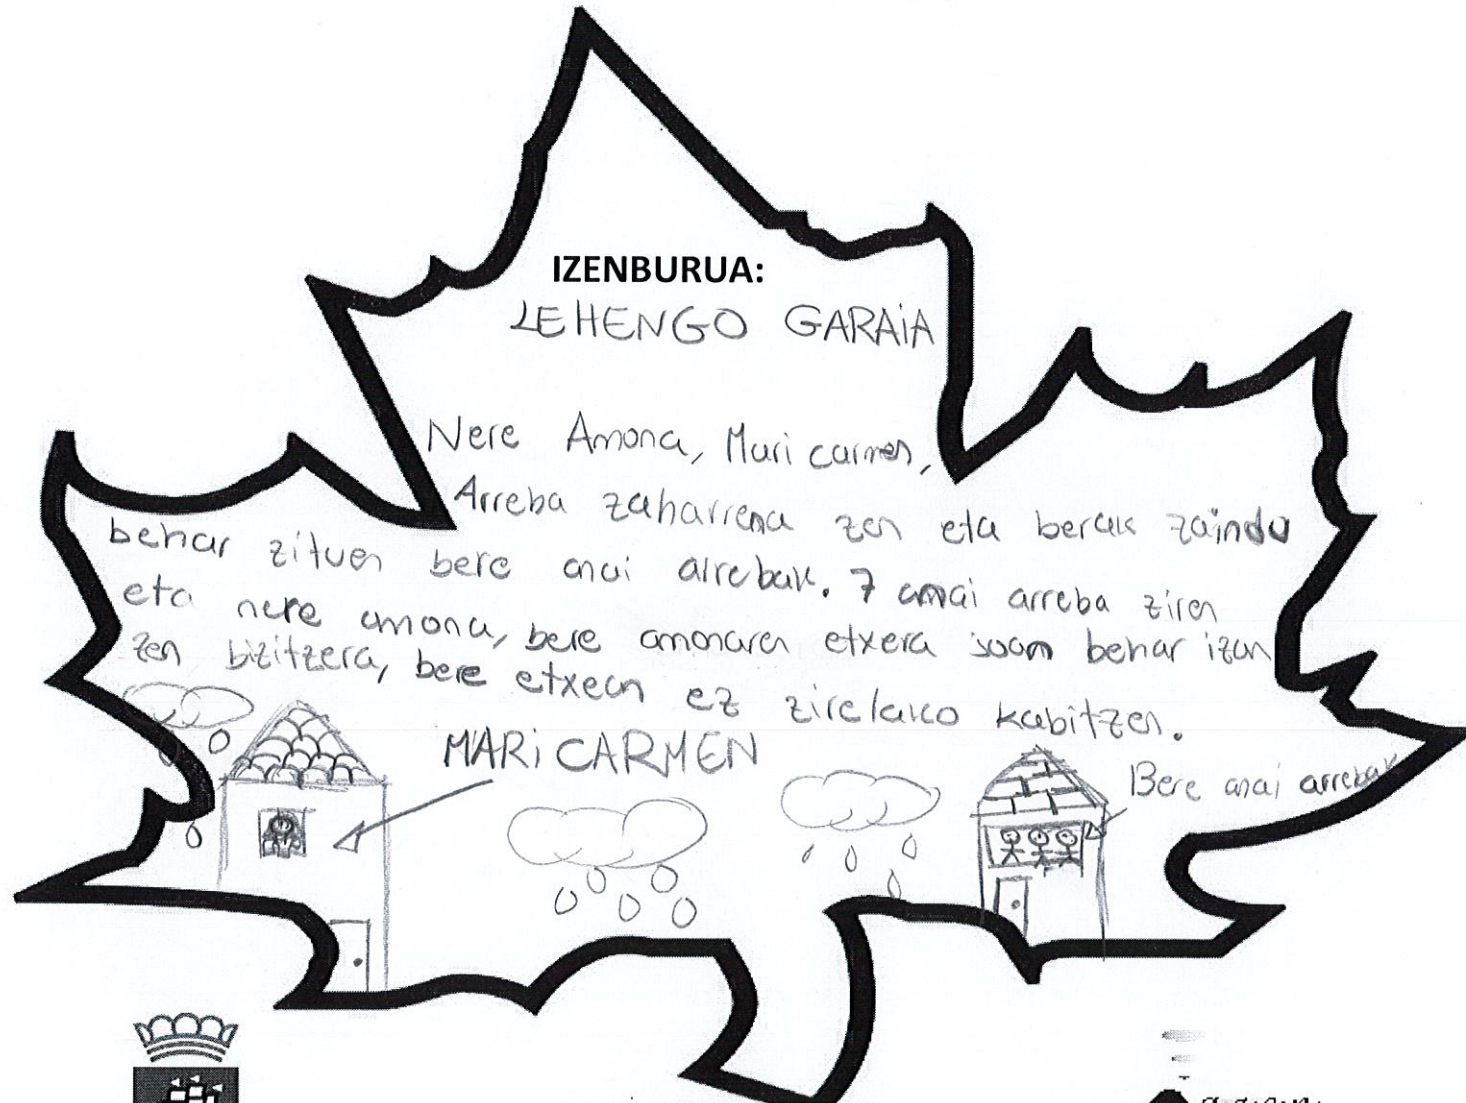 IZENBURUA:
LEHENGO GARAiA
Nere Amona, Mari carmen,
Arreba zaharrena zen eta berak zaindu
behar zituen bere anai arrebak. 7 anai arreba ziren
eta nere amona, bere amonaren etxera joan behar izan
zen bizitzera, bere etxean ez zirelako kabitzen.
MARi CARMEN
Bere anai arrebak